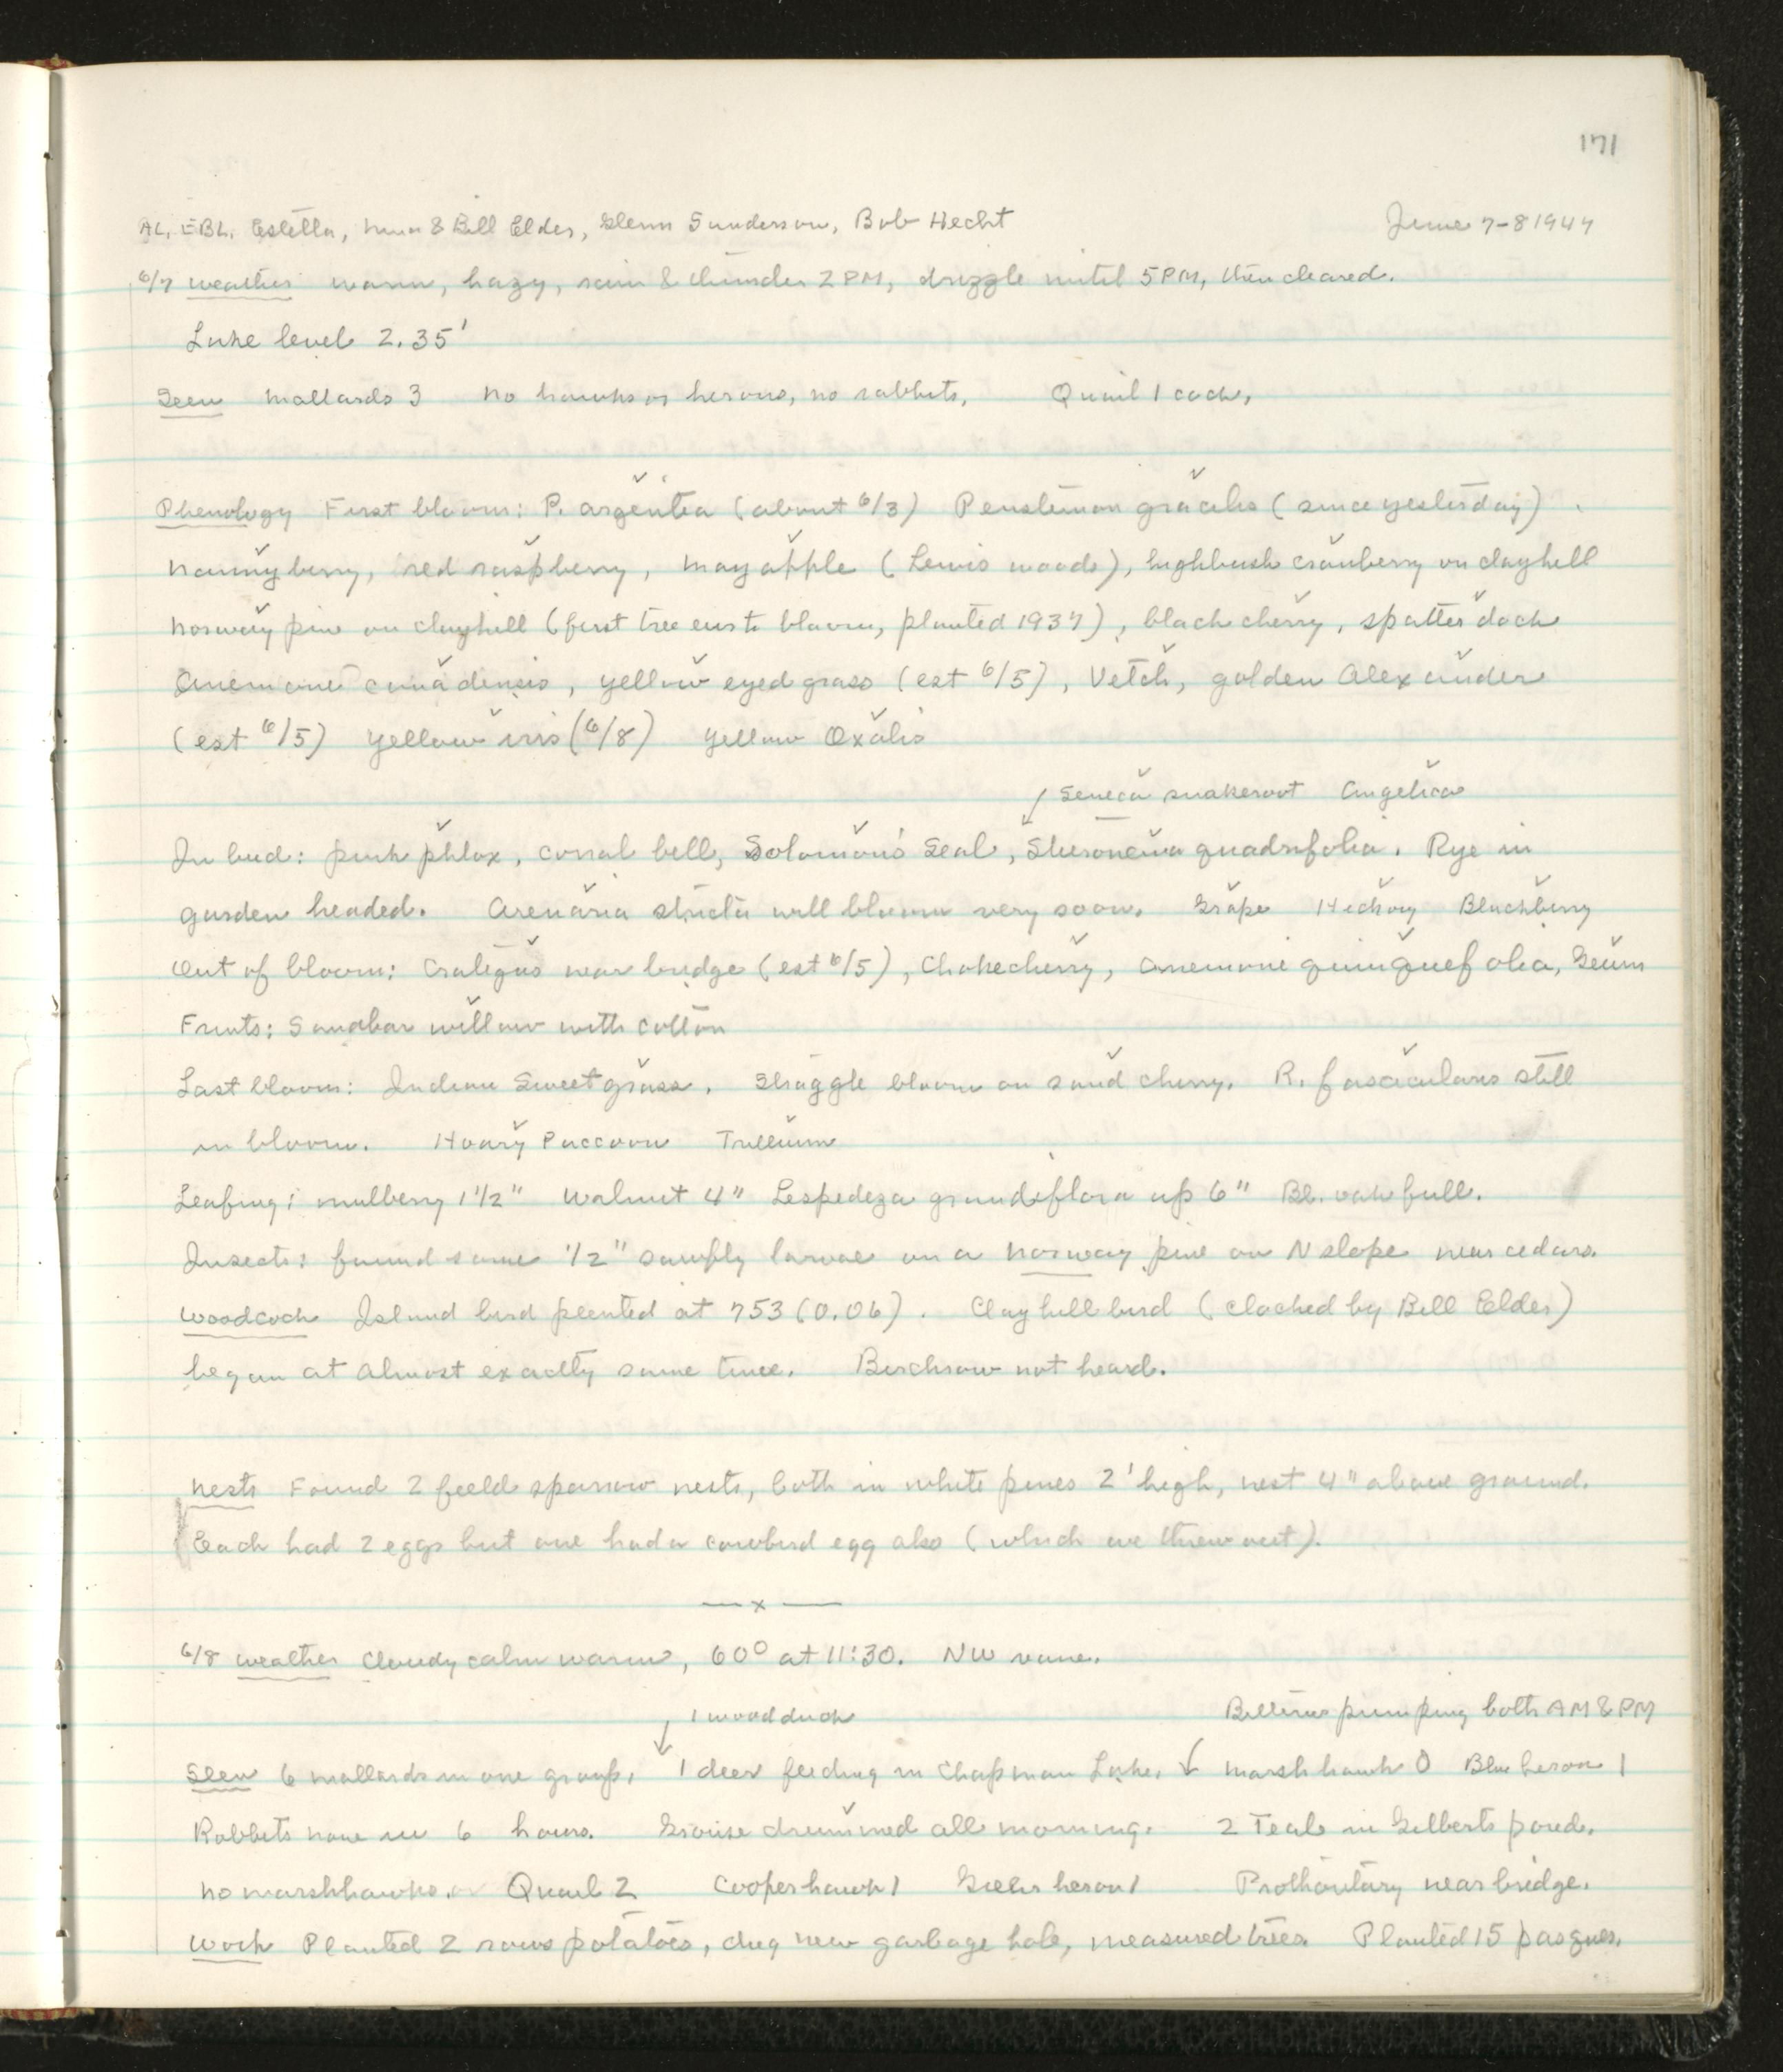 171
AL, EBL, Estella, Nina & Bill Elder, Glenn Sanderson, Bob Hecht June 7-8 1947
6/7 Weather warm, hazy, rain & thunder 2 PM, drizzle until 5 PM, then cleared.
Lake level 2.35'
Seen Mallards 3 No hawks or herons, no rabbits, Quail 1 cock,
Phenology First bloom: P. argentea (about 6/3) Penstemon gracilis (since yesterday)
Nannyberry, red raspberry, mayapple (Lewis woods), highbush cranberry on clayhill
Norway pine on clayhill (first tree ever to bloom, planted 1937), black cherry, spatterdock
Anemone canadensis, yellow eyed grass (est 6/5), Vetch, golden Alexander
(est 6/5) Yellow iris (6/8) Yellow Oxalis
Seneca snakeroot Angelica
In bud: pink phlox, corral bell, Solomon's Seal, Steironema quadrifolia. Rye in
garden headed. Arenaria stricta will bloom very soon. Grape Hickory Blackberry
Out of bloom: Crategus near bridge (est 6/5), Chokecherry, Anemone quinquefolia, Geum
Fruits: Sandbar willow with cotton
Last bloom: Indian Sweetgrass. Straggle bloom on sand cherry. R. fascicularis still
in bloom. Hoary Puccoon Trillium
Leafing: mulberry 1 1/2" Walnut 4" Lespedeza grandiflora up 6" Bl. oak full.
Insects: found some 1/2" sawfly larvae on a Norway pine on N slope near cedars.
Woodcock Island bird peented at 753 (0.06). Clayhill bird (clocked by Bill Elder)
began at almost exactly same time. Birchrow not heard.
Nests Found 2 field sparrow nests, both in white pines 2' high, nest 4" above ground.
Each had 2 eggs but one had a cowbird egg also (which we threw out).
— x —
6/8 Weather Cloudy calm warm, 60° at 11:30. NW vane.
1 woodduck Bittern pumping both AM & PM
Seen 6 mallards in one group, 1 deer feeding in Chapman Lake. Marsh hawk 0 Blue heron 1
Rabbits none in 6 hours. Grouse drummed all morning. 2 Teal in Gilberts pond.
No marshhawks. Quail 2 Cooper hawk 1 Green heron 1 Prothontary near bridge.
Work Planted 2 rows potatoes, dug new garbage hole, measured trees. Planted 15 pasques.